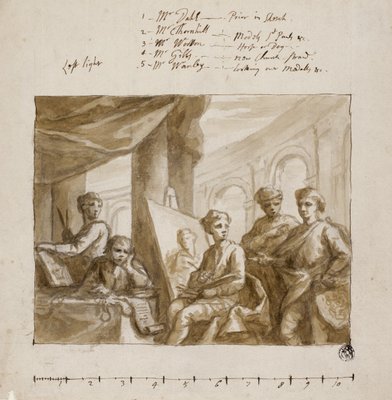 1 - Mr Dahl — Prior in Sketch.
2 - Mr Thornhill — Modells
3 - Mr Wootton — Horse or Dog.
4 - Mr Gibbs — new Church Strand.
5 - Mr Wanley — looking over Modells &c.
Left light
1 2 3 4 5 6 7 8 9 10